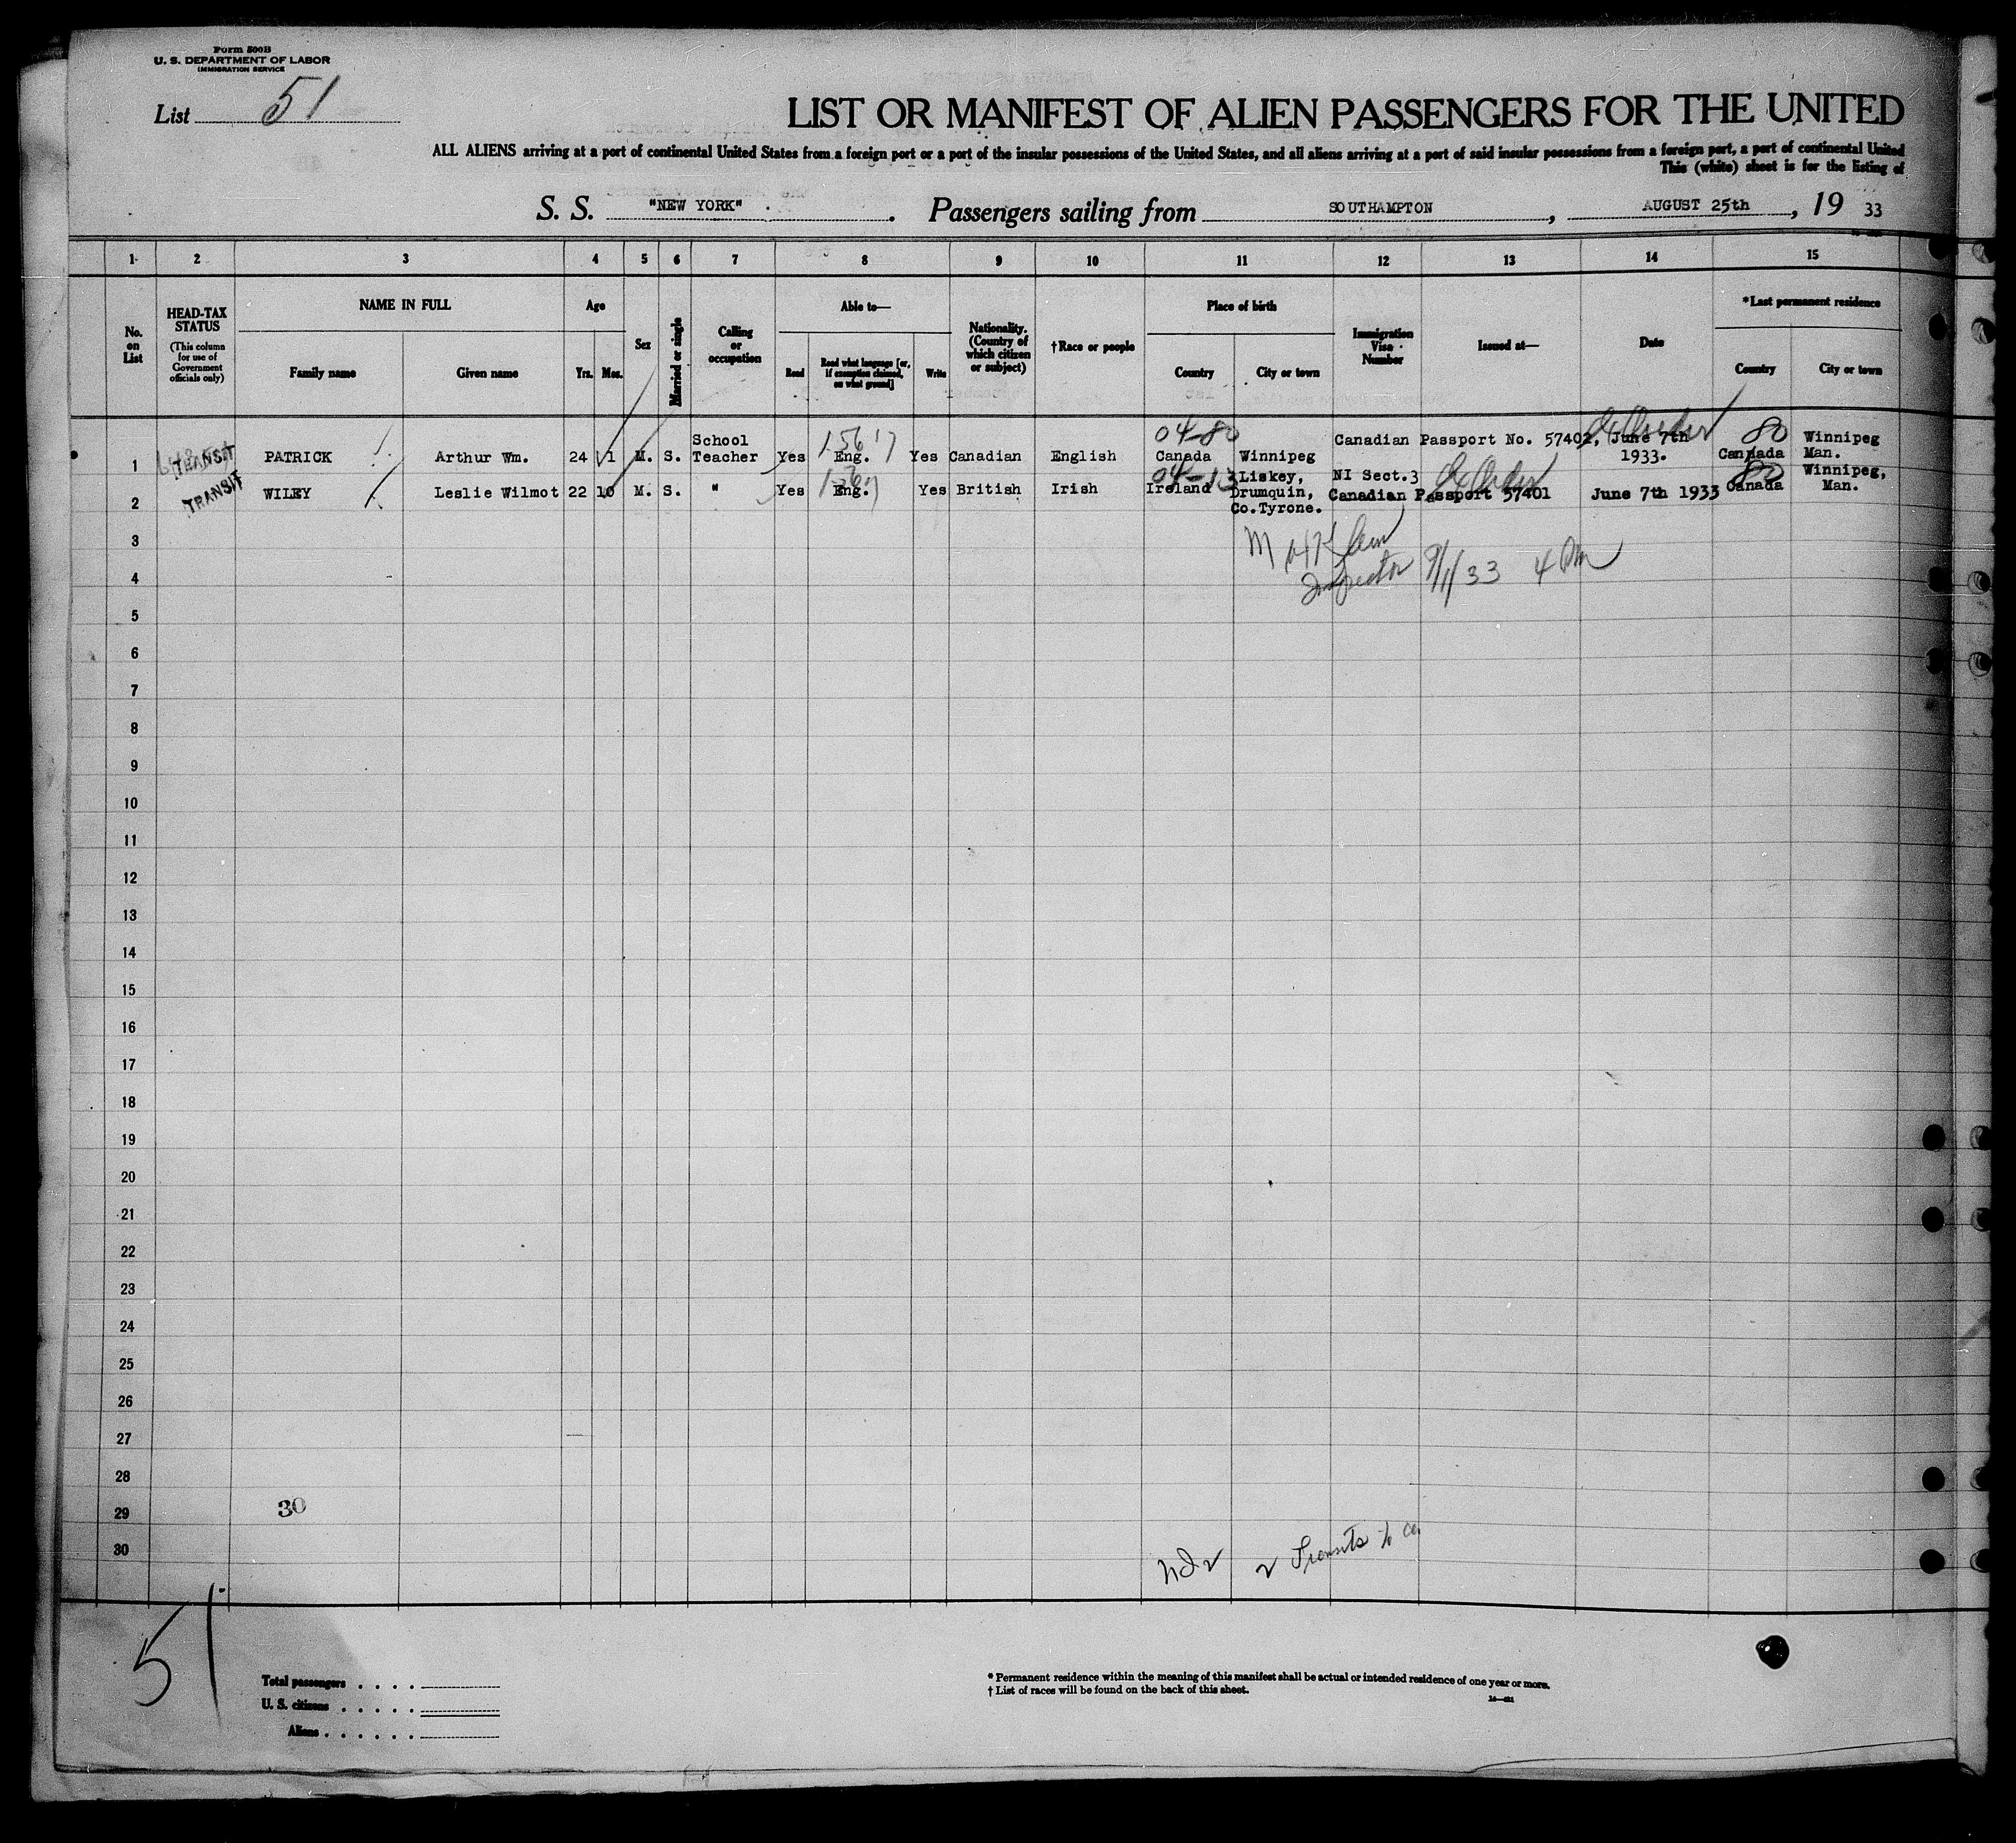 Form 500B
U. S. DEPARTMENT OF LABOR
IMMIGRATION SERVICE
List 51
LIST OR MANIFEST OF ALIEN PASSENGERS FOR THE UNITED
ALL ALIENS arriving at a port of continental United States from a foreign port or a port of the insular possessions of the United States, and all aliens arriving at a port of said insular possessions from a foreign port, a port of continental United
This (white) sheet is for the listing of
S. S. "NEW YORK" . Passengers sailing from SOUTHAMPTON, AUGUST 25th, 19 33
1 2 3 4 5 6 7 8 9 10 11 12 13 14 15
No. on List
HEAD-TAX STATUS
(This column for use of Government officials only)
NAME IN FULL
Family name Given name
Age
Yrs. Mos.
Sex
Married or single
Calling or occupation
Able to—
Read Read what language [or, if exemption claimed, on what ground] Write
Nationality. (Country of which citizen or subject)
†Race or people
Place of birth
Country City or town
Immigration Visa Number
Issued at—
Date
*Last permanent residence
Country City or town
1 TRANSIT PATRICK Arthur Wm. 24 1 M. S. School Teacher Yes Eng. Yes Canadian English 04-80 Canada Winnipeg Canadian Passport No. 57402, June 7th 1933. 80 Canada Winnipeg Man.
2 TRANSIT WILEY Leslie Wilmot 22 10 M. S. " Yes Eng. Yes British Irish 04-13 Ireland Liskey, Drumquin, Co.Tyrone. NI Sect.3 Canadian Passport 57401 June 7th 1933 80 Canada Winnipeg, Man.
Inspector 9/1/33 4 PM
3
4
5
6
7
8
9
10
11
12
13
14
15
16
17
18
19
20
21
22
23
24
25
26
27
28
29 30
30
2 Transits to
51
Total passengers
U. S. citizens
Aliens
* Permanent residence within the meaning of this manifest shall be actual or intended residence of one year or more.
† List of races will be found on the back of this sheet.